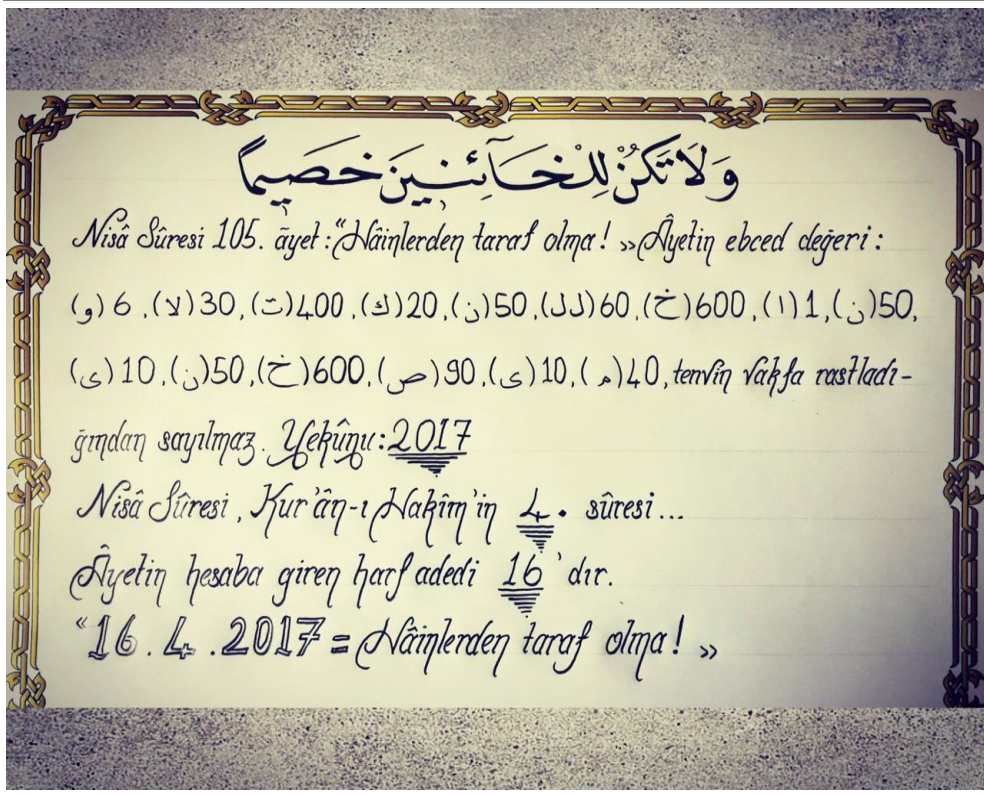 وَلَا تَكُنْ لِلْخَآئِنِينَ خَصِيمًا
Nisâ Sûresi 105. âyet: “Hâinlerden taraf olma! »Âyetin ebced değeri:
(و) 6 ,(لا)30,(ت)400,(ك)20,(ن)50,(لل)60,(خ)600,(ا)1,(ن)50,
(ى)10,(ن)50,(خ)600,(ص)90,(ى)10,(م)40,tenvin vakfa rastladı-
ğından sayılmaz. Yekûnu:2017
Nisâ Sûresi, Kur’ân-ı Hakîm’in 4. sûresi...
Âyetin hesaba giren harf adedi 16’dır.
“16.4.2017=Hâinlerden taraf olma! »